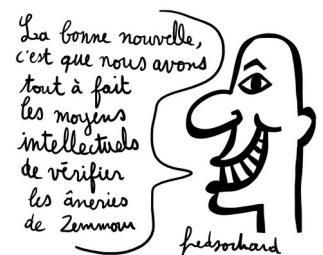 La bonne nouvelle,
c'est que nous avons
tout à fait
les moyens
intellectuels
de vérifier
les âneries
de Zemmour
fredsochard